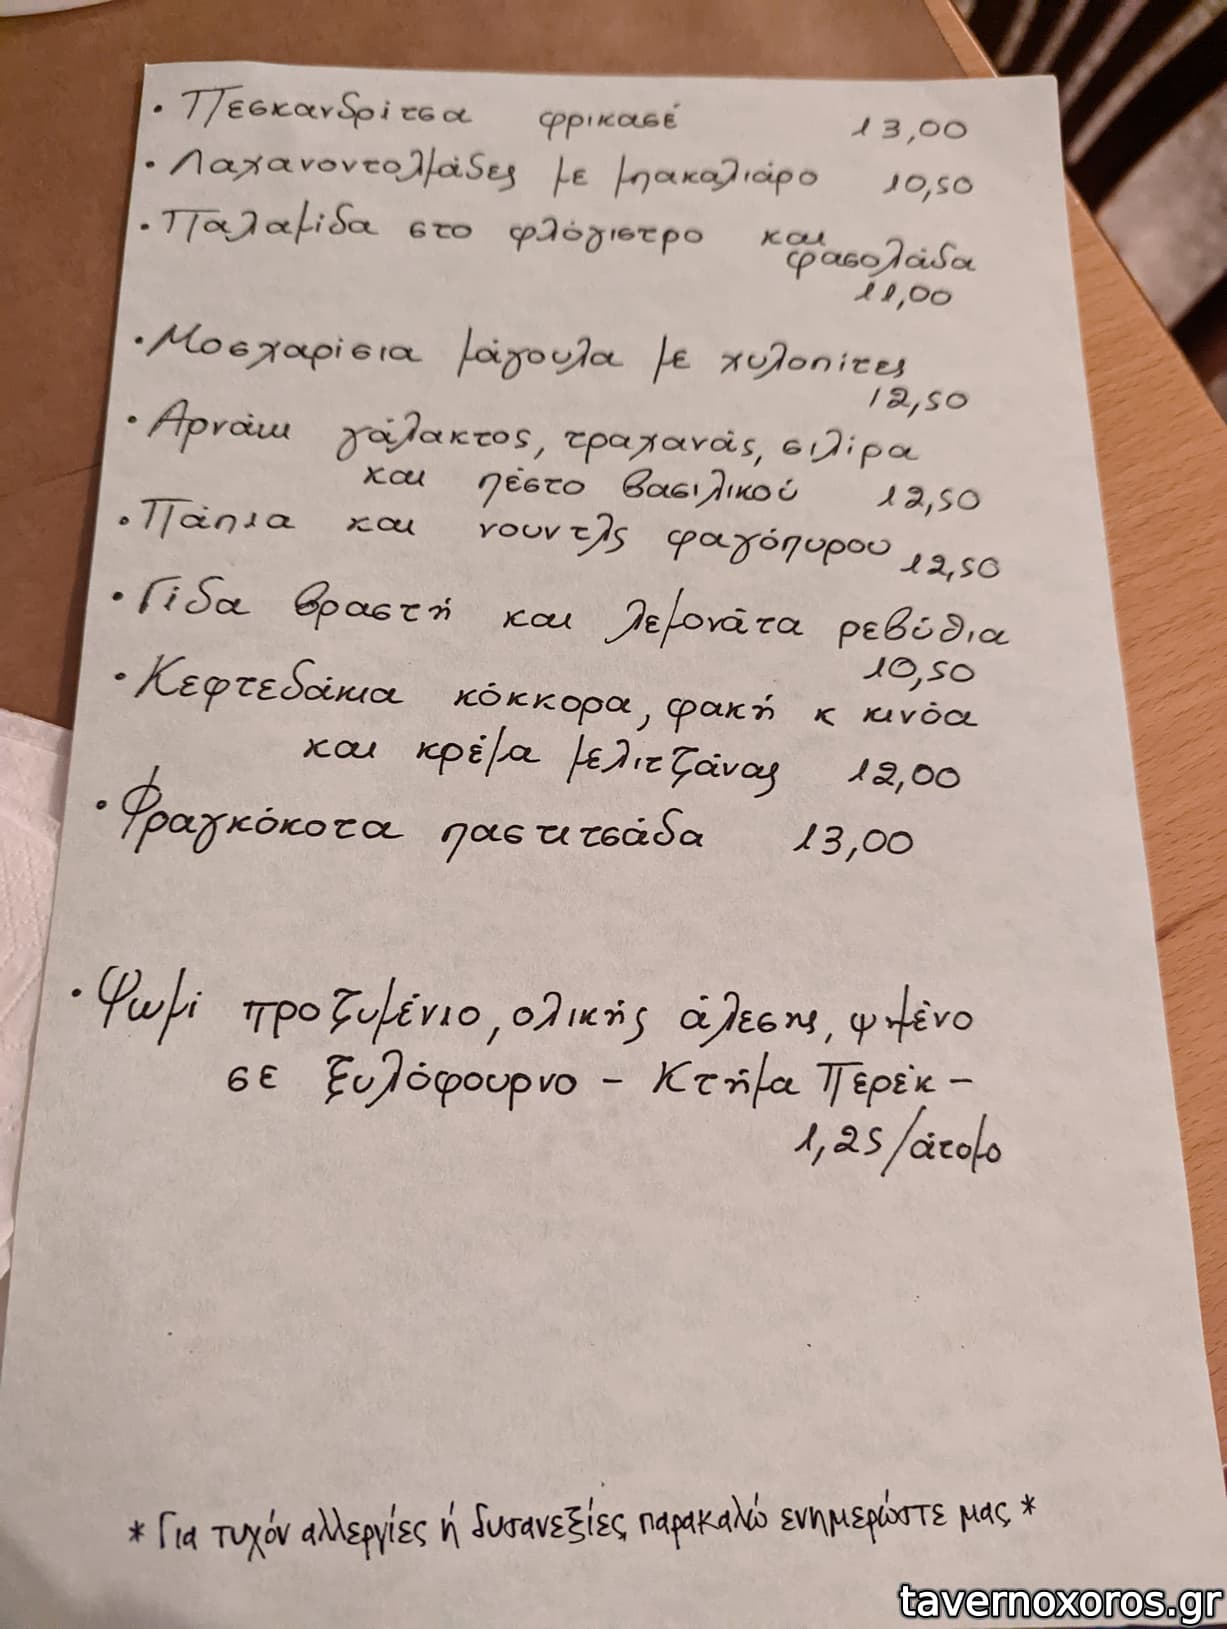 · Πεσκανδρίτσα φρικασέ 13,00
· Λαχανοντολμάδες με μπακαλιάρο 10,50
· Παλαμίδα στο φλόγιστρο και
φασολάδα
11,00
· Μοσχαρίσια μάγουλα με χυλοπίτες
12,50
· Αρνάκι γάλακτος, τραχανάς, σιλίρα
και πέστο βασιλικού 12,50
· Πάπια και νουντλς φαγόπυρου 12,50
· Γίδα βραστή και λεμονάτα ρεβύθια
10,50
· Κεφτεδάκια κόκκορα, φακή κ κινόα
και κρέμα μελιτζάνας 12,00
· Φραγκόκοτα παστιτσάδα 13,00
· Ψωμί προζυμένιο, ολικής άλεσης, ψημένο
σε ξυλόφουρνο – Κτήμα Περέκ –
1,25/άτομο
* Για τυχόν αλλεργίες ή δυσανεξίες παρακαλώ ενημερώστε μας *
tavernoxoros.gr